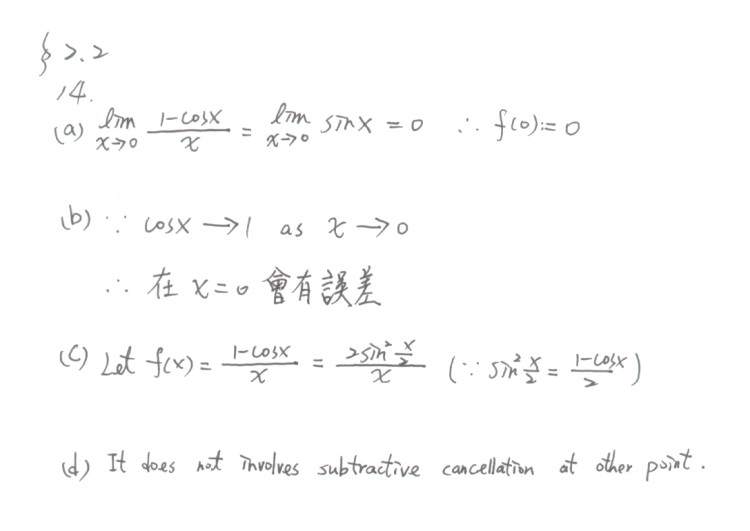 § 2.2
14.
(a) lim x→0 (1-cosx)/x = lim x→0 sinx = 0 ∴ f(0):= 0
(b) ∵ cosx → 1 as x → 0
∴ 在 x=0 會有誤差
(c) Let f(x) = (1-cosx)/x = (2sin² x/2)/x (∵ sin² x/2 = (1-cosx)/2)
(d) It does not involves subtractive cancellation at other point.